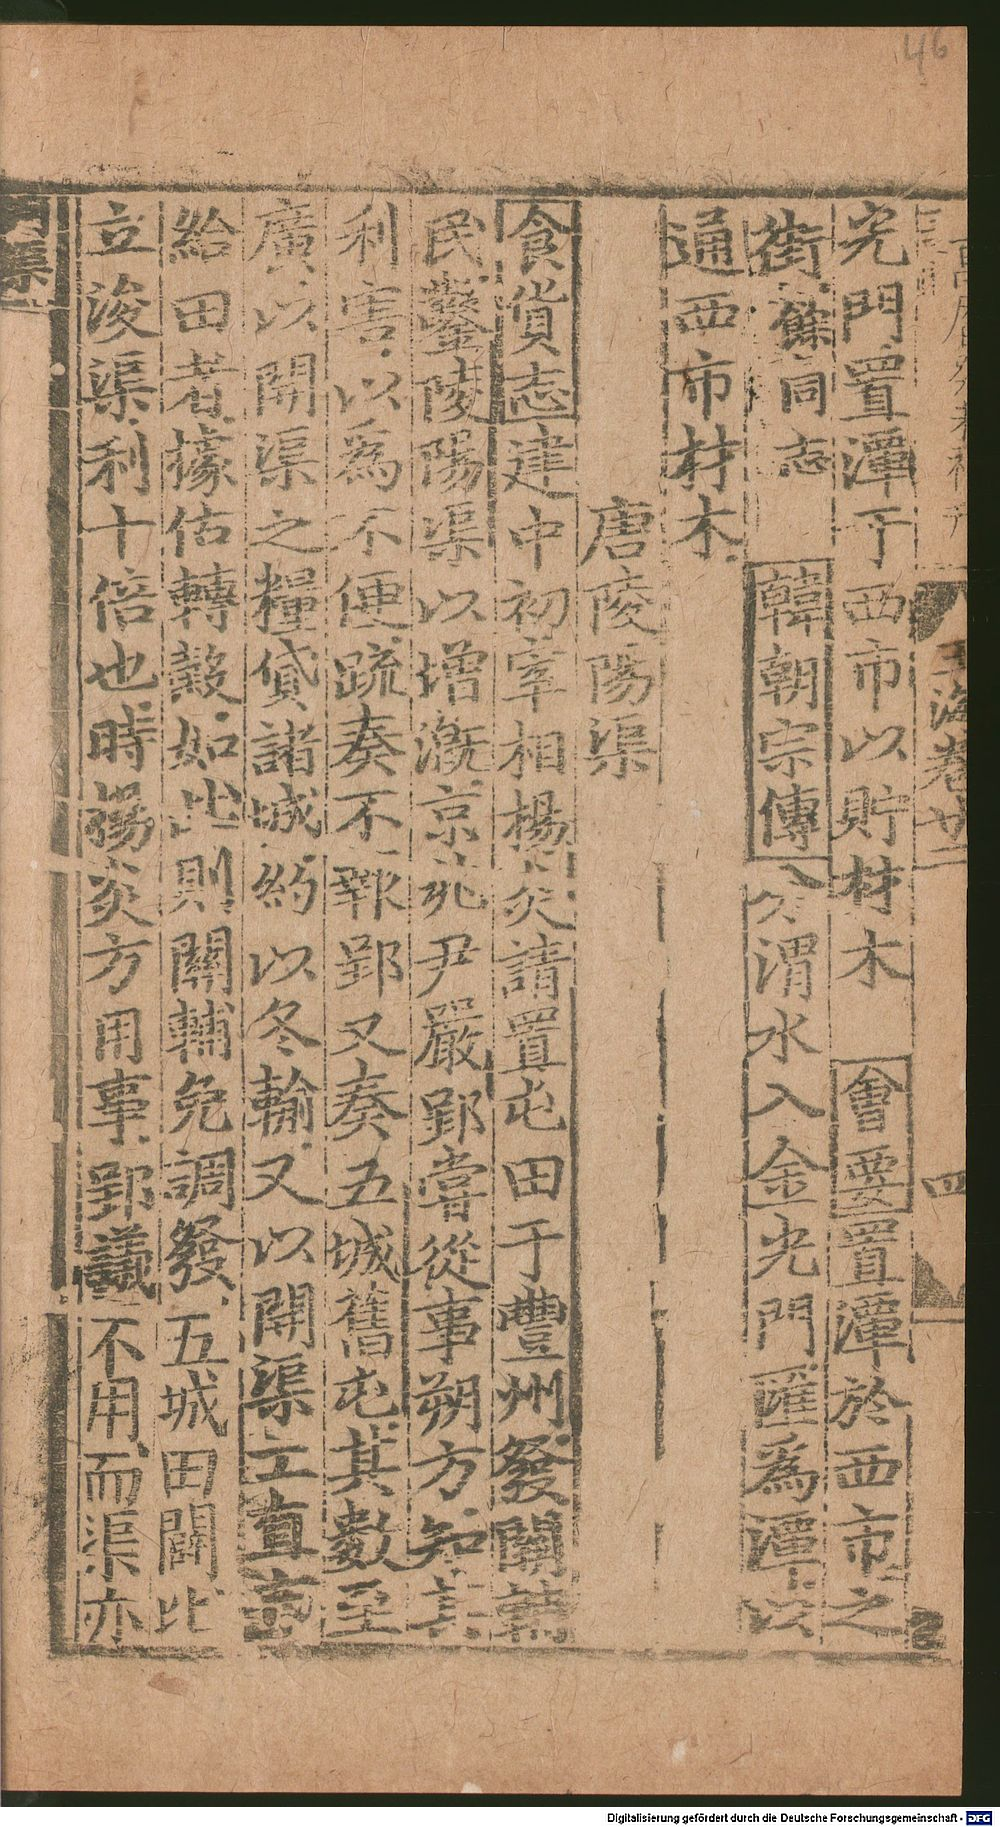 46
玉海卷廿二
四
光門置潭于西市以貯材木 會要置潭於西市之
街餘同志 韓朝宗傳分渭水入金光門匯為潭以
通西市材木
唐陵陽渠
食貨志建中初宰相楊炎請置屯田于豐州發關輔
民鑿陵陽渠以增溉京兆尹嚴郢嘗從事朔方知其
利害以為不便疏奏不報郢又奏五城舊屯其數至
廣以開渠之糧貸諸城約以冬輸又以開渠工直
給田者據估轉穀如此則關輔免調發五城田闢比
立浚渠利十倍也時楊炎方用事郢議不用而渠亦
渠
Digitalisierung gefördert durch die Deutsche Forschungsgemeinschaft - DFG